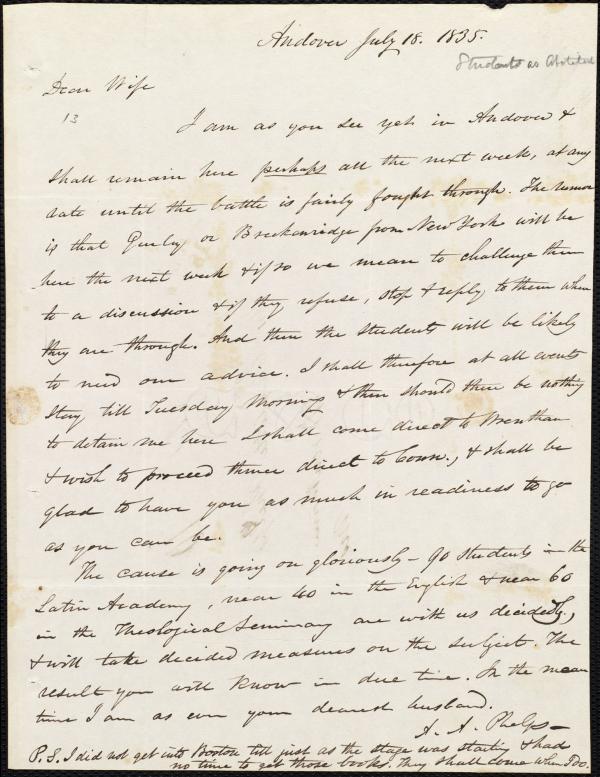 Andover July 18. 1835.
Students as Abolition
Dear Wife
13
I am as you see yet in Andover &
shall remain here perhaps all the next week, at any
rate until the battle is fairly fought through. The rumor
is that Gurley or Breckenridge from New York will be
here the next week & if so we mean to challenge them
to a discussion & if they refuse, stop & reply to them when
they are through. And then the students will be likely
to need our advice. I shall therefore at all events
stay till Tuesday Morning & then should there be nothing
to detain me here I shall come direct to Wrentham
& wish to proceed thence direct to Conn., & shall be
glad to have you as much in readiness to go
as you can be.
The cause is going on gloriously - 90 students in the
Latin Academy, near 40 in the English & near 60
in the Theological Seminary are with us decidedly,
& will take decided measures on the subject. The
result you will know in due time. In the mean
time I am as ever your dearest husband.
A. A. Phelps
P.S. I did not get into Boston till just as the stage was starting & had
no time to get those books. They shall come when I do.